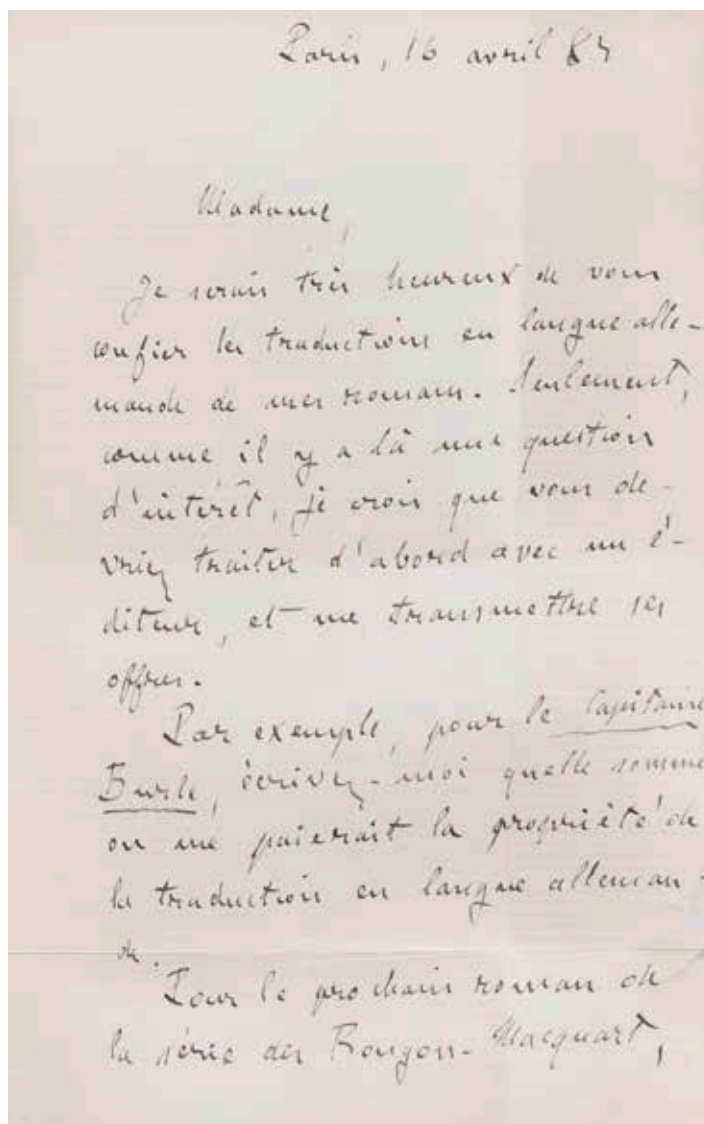 Paris, 16 avril
Madame,
Je serais très heureux de vous
confier les traductions en langue alle-
mande de mes romans. Seulement,
comme il y a là une question
d'intérêt, je crois que vous de-
vriez traiter d'abord avec un é-
diteur, et me transmettre ses
offres.
Par exemple, pour le Capitaine
Burle, écrivez-moi quelle somme
on me paierait la propriété de
la traduction en langue alleman-
de.
Pour le prochain roman de
la série des Rougon-Macquart,